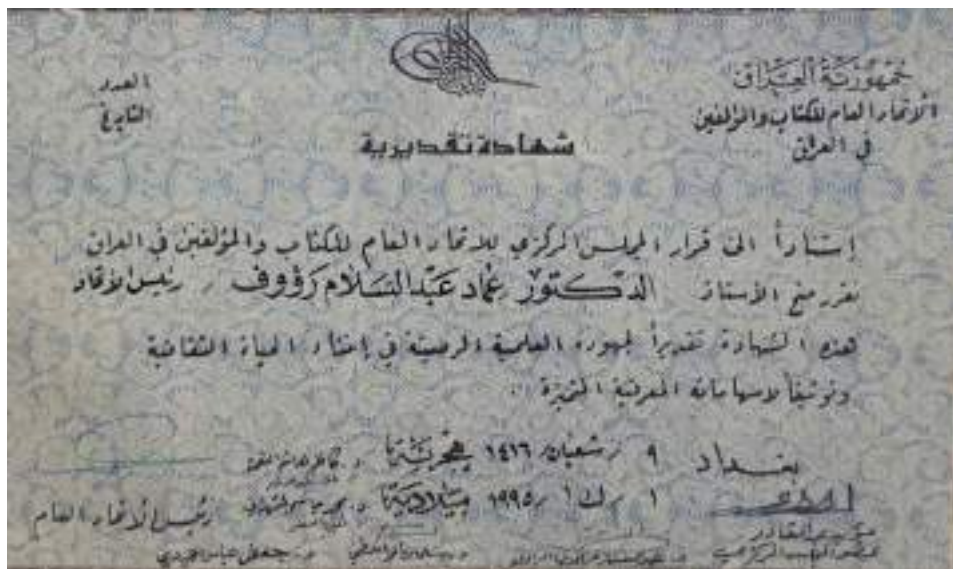 جمهورية العراق
الاتحاد العام للكتاب والمؤلفين
في العراق
العدد
التاريخ
شهادة تقديرية
إستناداً الى قرار المجلس المركزي للاتحاد العام للكتاب والمؤلفين في العراق
تقرر منح الأستاذ الدكتور عماد عبد السلام رؤوف / رئيس الاتحاد
هذه الشهادة تقديراً لجهوده العلمية الرصينة في إغناء الحياة الثقافية
وتوثيقاً لاسهاماته المعرفية المتميزة ..
بغداد ٩ / شعبان ١٤١٦ هجرية
١ / ك١ / ١٩٩٥ ميلادية
رئيس الاتحاد العام